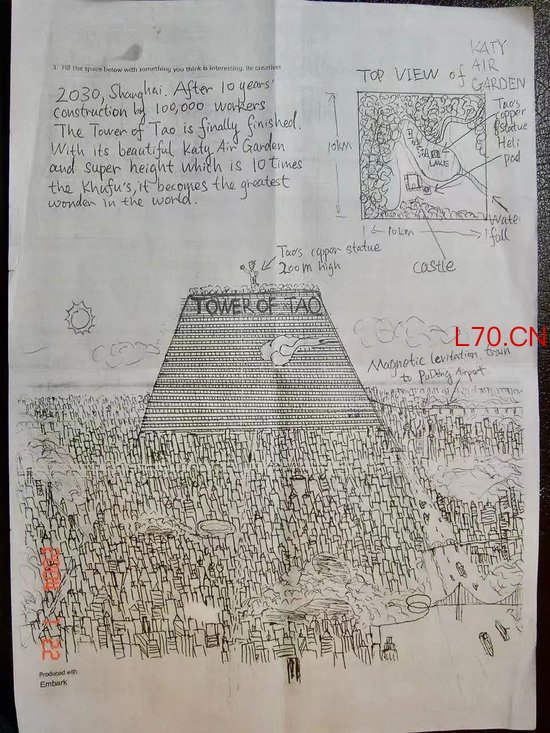 3. Fill the space below with something you think is interesting. Be creative!
2030, Shanghai. After 10 years'
construction by 100,000 workers
The Tower of Tao is finally finished.
With its beautiful Katy Air Garden
and super height which is 10 times
the Khufu's, it becomes the greatest
wonder in the world.
TOP VIEW of KATY
AIR
GARDEN
Tao's
copper
statue
Heli
pad
LAKE
10km
10km
Water
fall
castle
Tao's copper statue
200m high
TOWER OF TAO
L70.CN
Magnetic levitation train
to PuDong Airport
Produced with
Embark